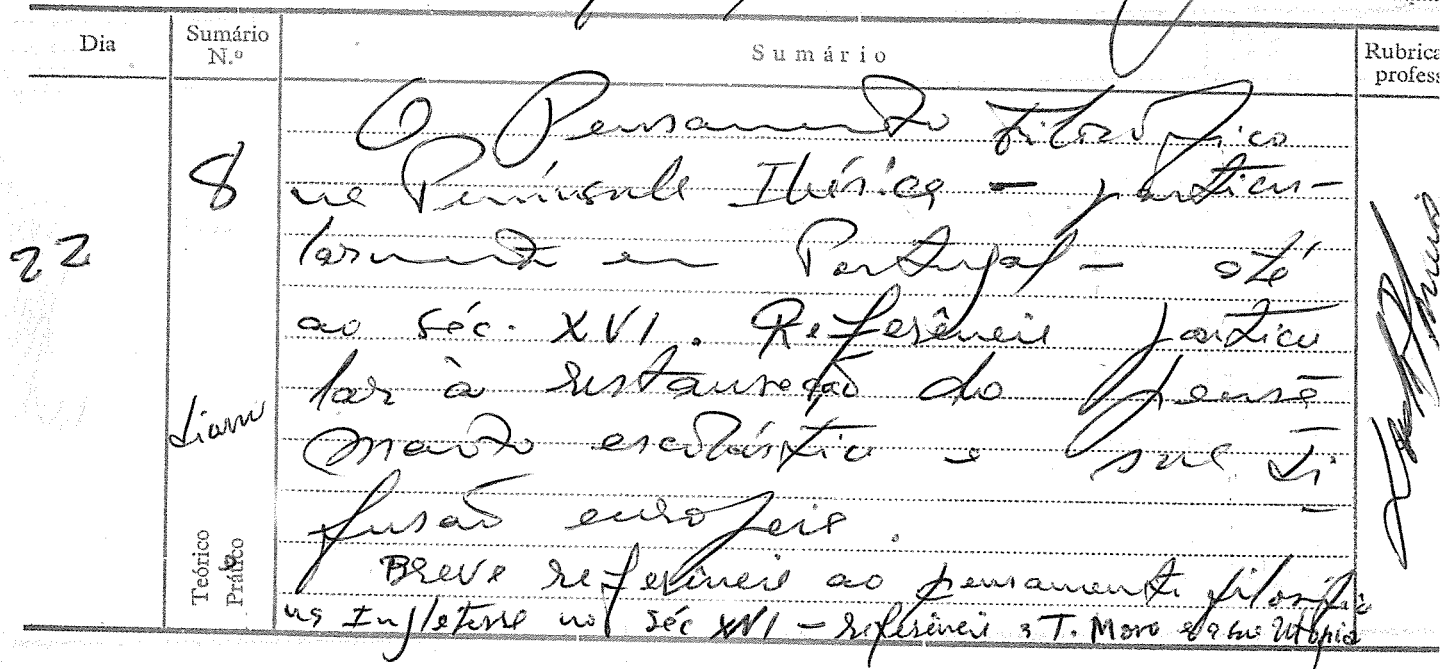 Dia
Sumário N.º
Sumário
Rubrica
profess
22
8
Teórico
Prático
O Pensamento Filosófico
na Península Ibérica - particu-
larmente em Portugal - até
ao séc. XVI. Referência particu
lar à restauração do pensa
mento escolástico e sua di
fusão europeia.
Breve referência ao pensamento filosófico
na Inglaterra no séc XVI - referência a T. Moro e a sua Utopia